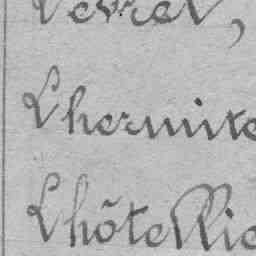 Levrel,
Lhermite
Lhôtellie